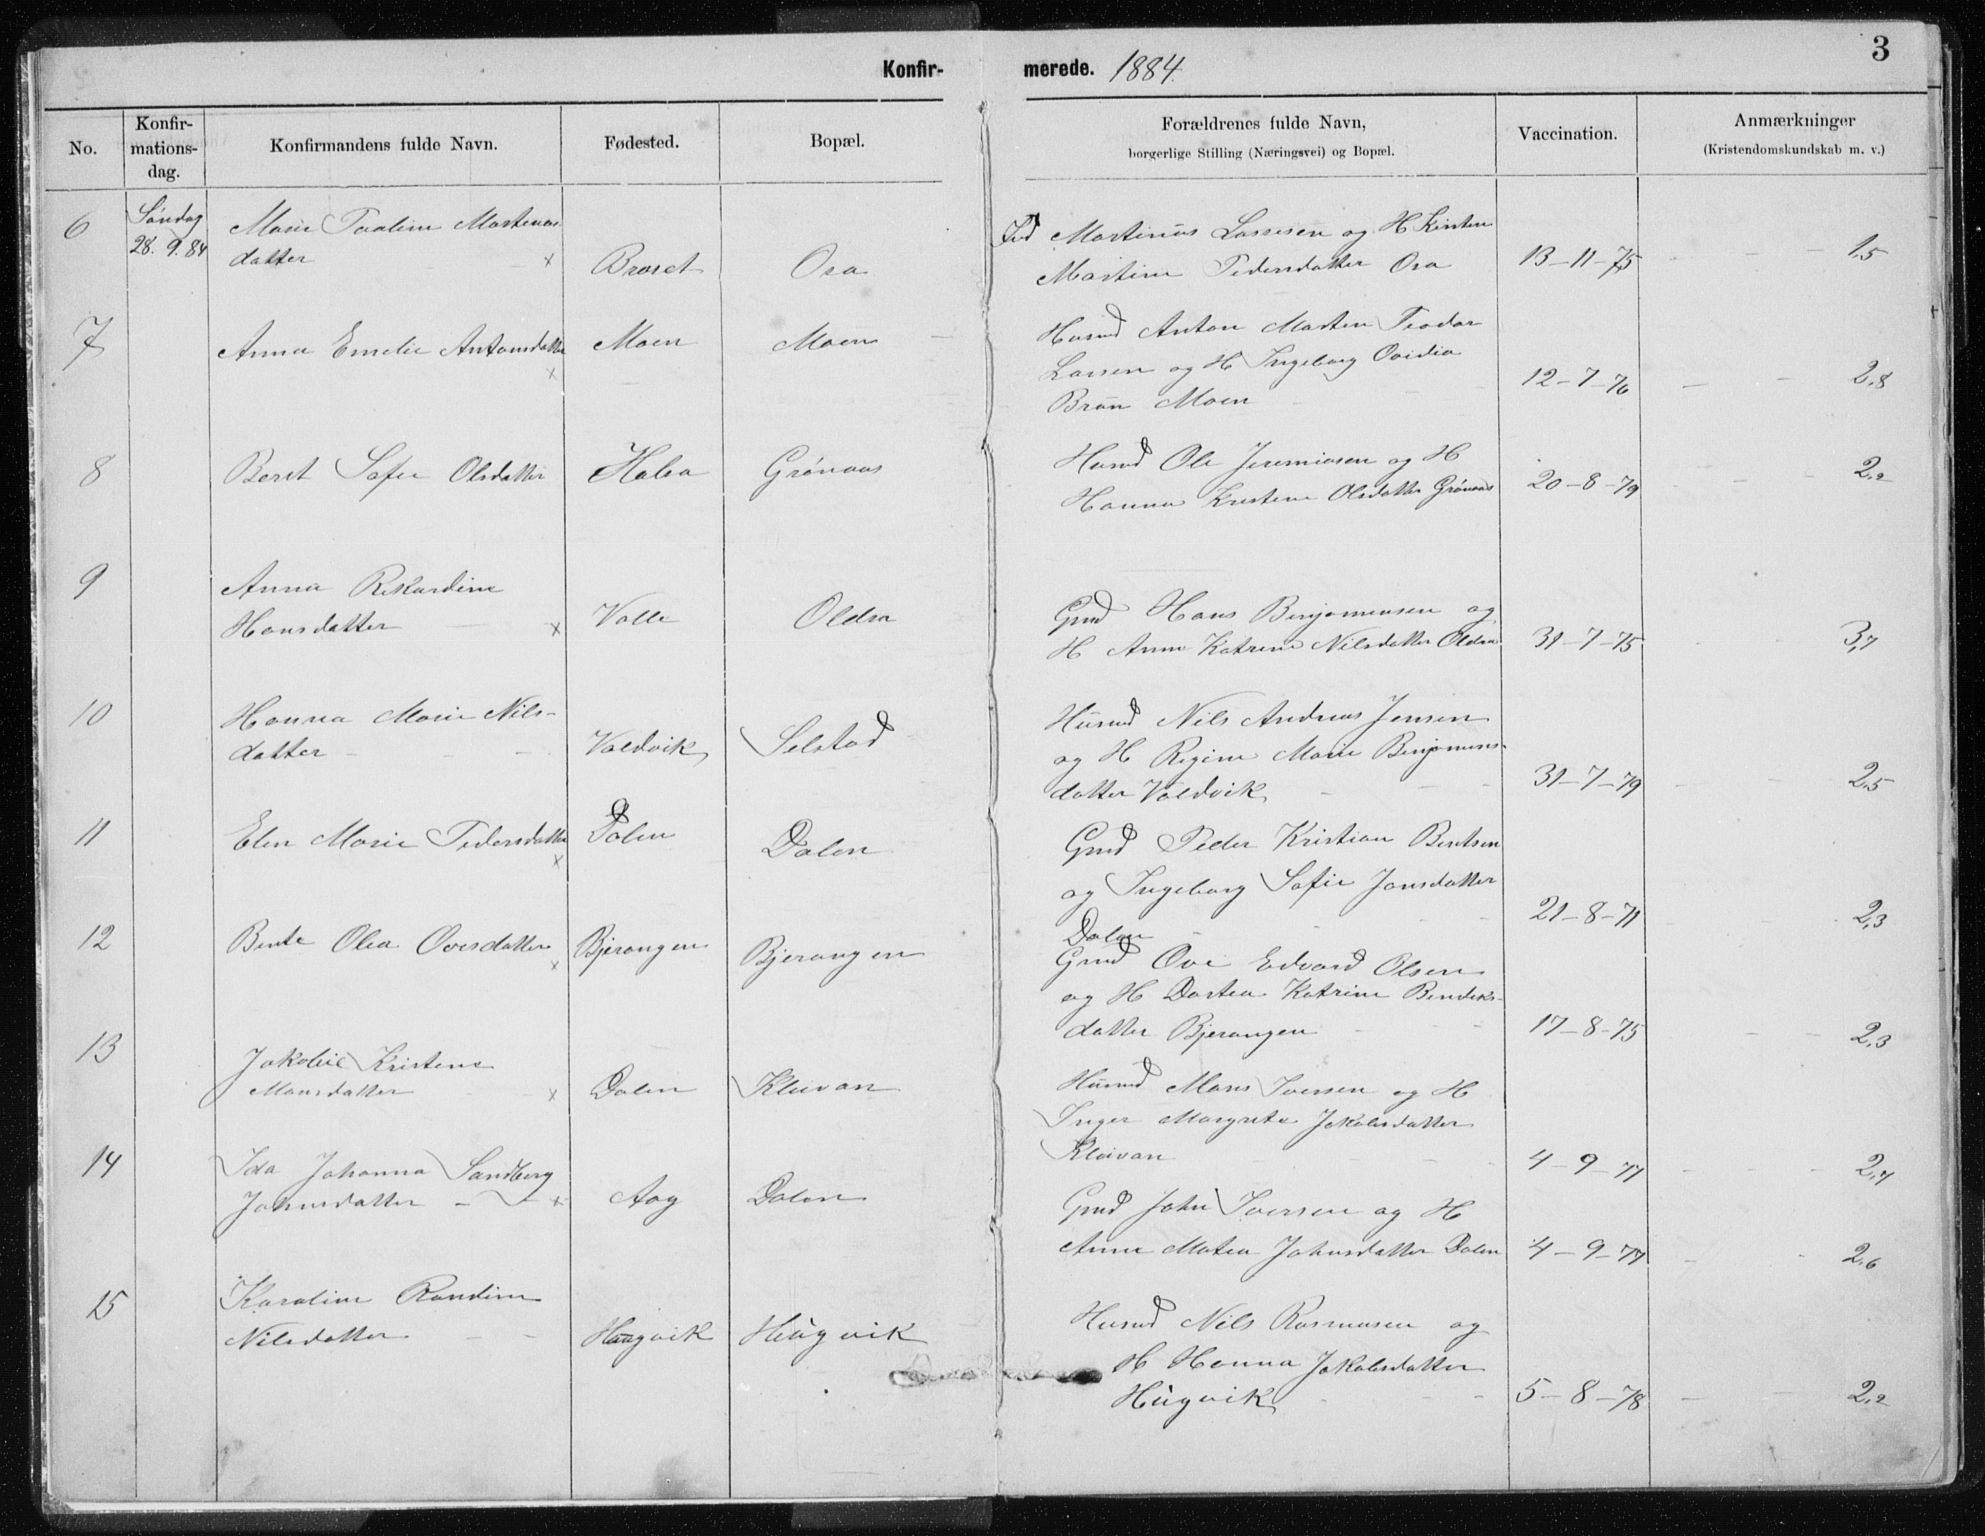 3
Konfir- merede. 1884.
No.
Konfir-
mations-
dag.
Konfirmandens fulde Navn.
Fødested.
Bopæl.
Forældrenes fulde Navn,
borgerlige Stilling (Næringsvei) og Bopæl.
Vaccination.
Anmærkninger
(Kristendomskundskab m. v.)
6 Søndag Marie Paaline Martinus
28. 9. 84 datter x Braset Osa
Martinus Larsen og H Kirsten
Martine Pedersdatter Osa 13-11-75 1,5
7 Anna Emelie Antonsdatter Moen Moen
x
Husmd Anton Morten Teodor
Larsen og H Ingeborg Ovidia
Brun Moen 12-7-76 2,8
8 Beret Sofie Olsdatter Halsa Grønaas
Husmd Ole Jeremiasen og H
Hanna Kristine Olsdatter Grønaas 20-8-79 2,2
9 Anna Rikardine
Hansdatter x Valle Oldra
Gmd Hans Benjaminsen og
H Anne Katrine Nilsdatter Oldra 31-7-75 3,7
10 Hanna Marie Nils-
datter Valdvik Selstad
Husmd Nils Andreas Jensen
og H Regine Marie Benjamins-
datter Valdvik 31-7-79 2,5
11 Elen Marie Pedersdatter Dalen Dalen
x
Gmd Peder Kristian Bentsen
og Ingeborg Sofie Jonsdatter
Dalen 21-8-71 2,3
12 Bente Olea Ovesdatter Bjerangen Bjerangen
x
Gmd Ove Edvard Olsen
og H Dortea Katrine Bendiks-
datter Bjerangen 17-8-75 2,3
13 Jakobie Kristene
Monsdatter x Dalen Kleivan
Husmd Mons Iversen og H
Inger Margrete Jakobsdatter
Kleivan 4-9-77 2,7
14 Ida Johanna Sandberg
Johnsdatter x Aag Dalen
Gmd John Iversen og H
Anne Matea Johnsdatter Dalen 4-9-77 2,6
15 Karoline Randine
Nilsdatter Haugvik Haugvik
Husmd Nils Rasmusen og
H Hanna Jakobsdatter
Haugvik 5-8-78 2,2